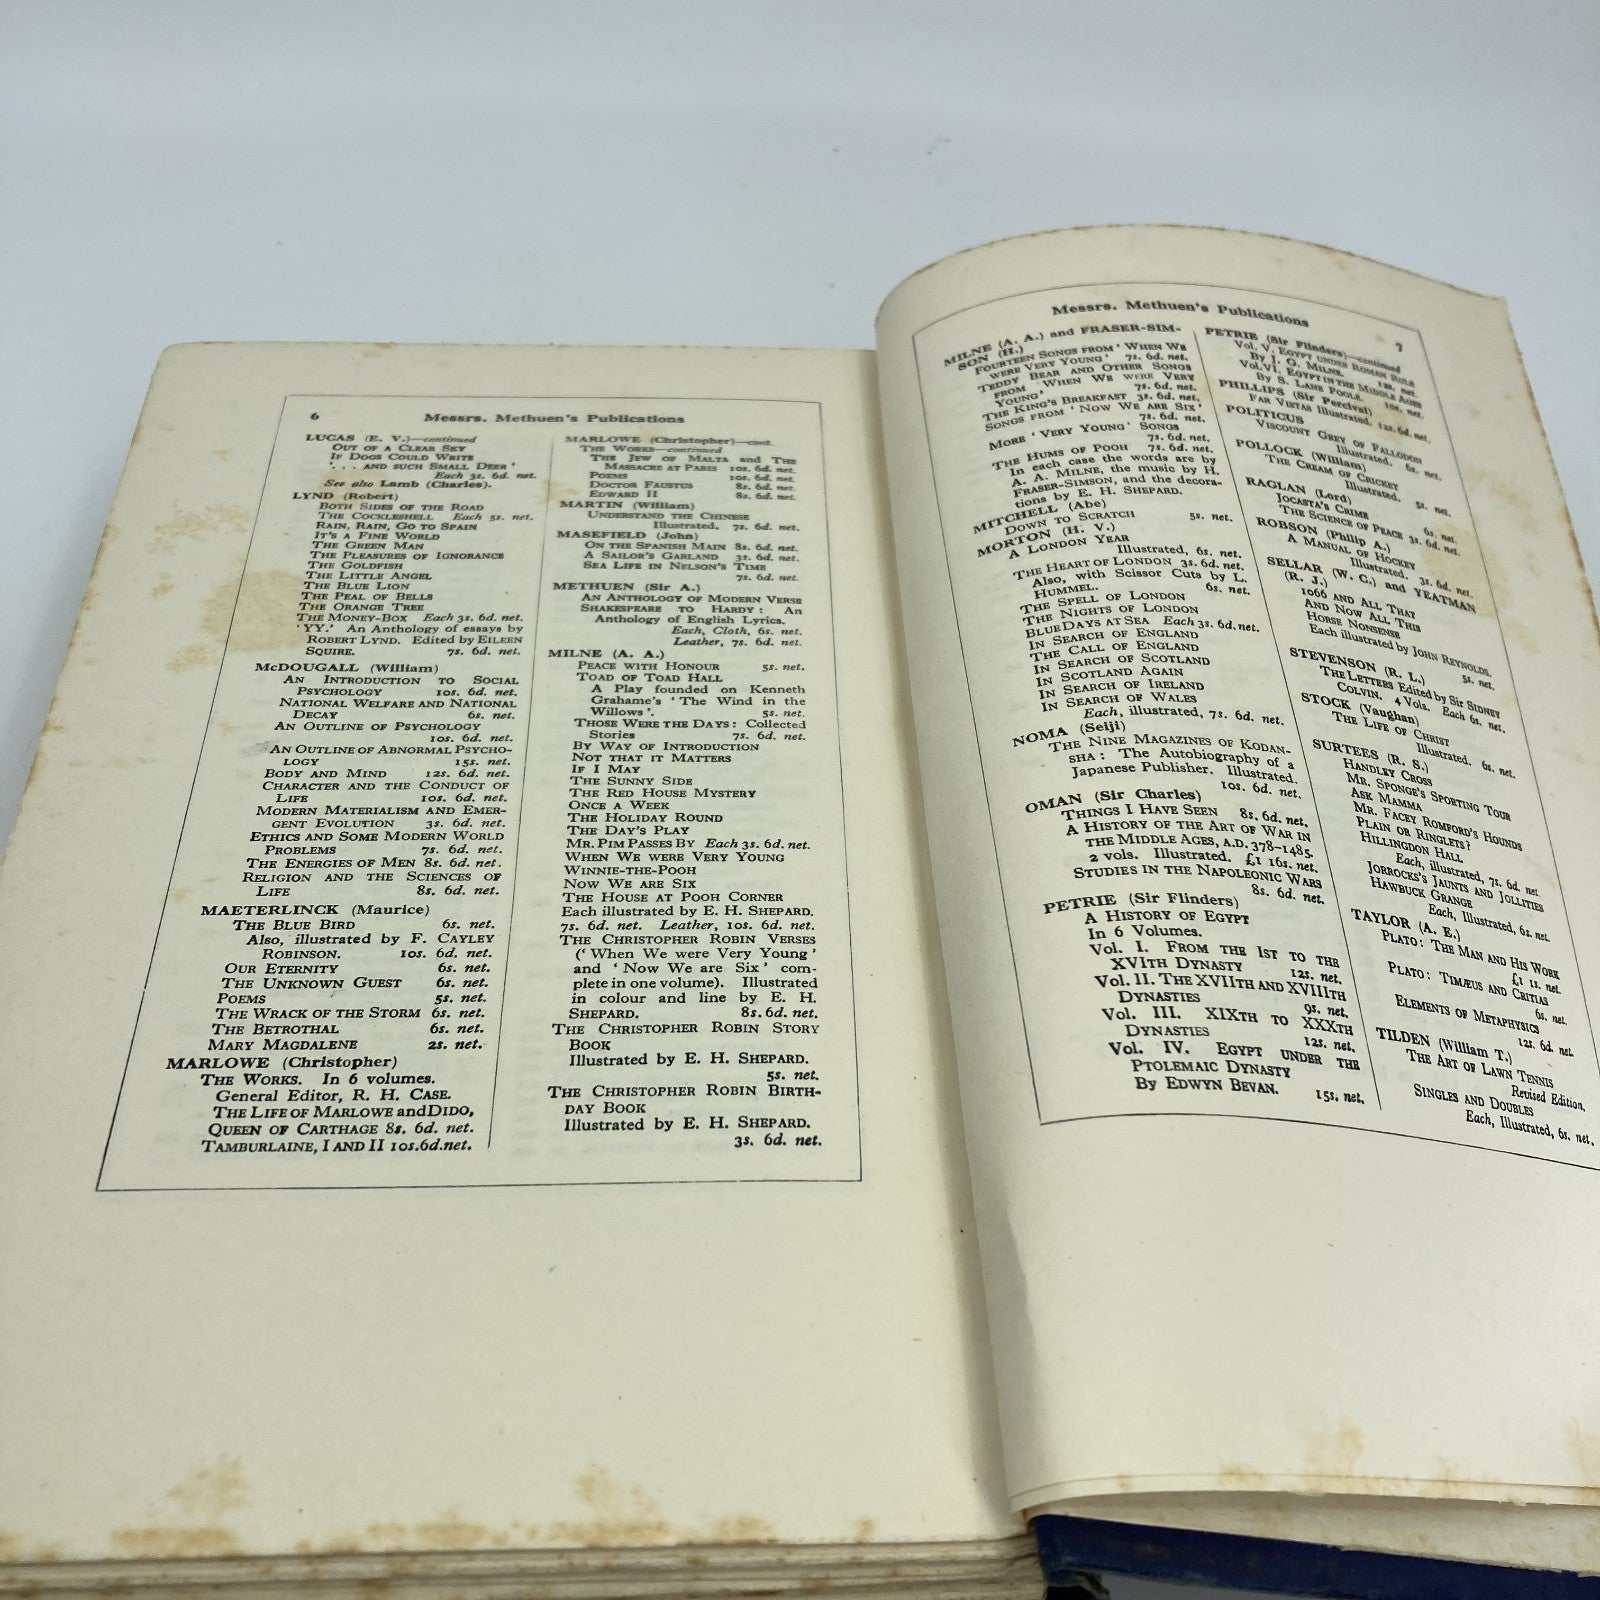 6 Messrs. Methuen's Publications
LUCAS (E. V.)—continued
OUT OF A CLEAR SKY
IF DOGS COULD WRITE
'. . . AND SUCH SMALL DEER'
Each 3s. 6d. net.
See also Lamb (Charles).
LYND (Robert)
BOTH SIDES OF THE ROAD
THE COCKLESHELL Each 5s. net.
RAIN, RAIN, GO TO SPAIN
IT'S A FINE WORLD
THE GREEN MAN
THE PLEASURES OF IGNORANCE
THE GOLDFISH
THE LITTLE ANGEL
THE BLUE LION
THE PEAL OF BELLS
THE ORANGE TREE
THE MONEY-BOX Each 3s. 6d. net.
'YY.' An Anthology of essays by
ROBERT LYND. Edited by EILEEN
SQUIRE. 7s. 6d. net.
McDOUGALL (William)
AN INTRODUCTION TO SOCIAL
PSYCHOLOGY 10s. 6d. net.
NATIONAL WELFARE AND NATIONAL
DECAY 6s. net.
AN OUTLINE OF PSYCHOLOGY
10s. 6d. net.
AN OUTLINE OF ABNORMAL PSYCHO-
LOGY 15s. net.
BODY AND MIND 12s. 6d. net.
CHARACTER AND THE CONDUCT OF
LIFE 10s. 6d. net.
MODERN MATERIALISM AND EMER-
GENT EVOLUTION 3s. 6d. net.
ETHICS AND SOME MODERN WORLD
PROBLEMS 7s. 6d. net.
THE ENERGIES OF MEN 8s. 6d. net.
RELIGION AND THE SCIENCES OF
LIFE 8s. 6d. net.
MAETERLINCK (Maurice)
THE BLUE BIRD 6s. net.
Also, illustrated by F. CAYLEY
ROBINSON. 10s. 6d. net.
OUR ETERNITY 6s. net.
THE UNKNOWN GUEST 6s. net.
POEMS 5s. net.
THE WRACK OF THE STORM 6s. net.
THE BETROTHAL 6s. net.
MARY MAGDALENE 2s. net.
MARLOWE (Christopher)
THE WORKS. In 6 volumes.
General Editor, R. H. CASE.
THE LIFE OF MARLOWE and DIDO,
QUEEN OF CARTHAGE 8s. 6d. net.
TAMBURLAINE, I AND II 10s.6d.net.
MARLOWE (Christopher)—cont.
THE WORKS—continued
THE JEW OF MALTA and THE
MASSACRE AT PARIS 10s. 6d. net.
POEMS 10s. 6d. net.
DOCTOR FAUSTUS 8s. 6d. net.
EDWARD II 8s. 6d. net.
MARTIN (William)
UNDERSTAND THE CHINESE
Illustrated. 7s. 6d. net.
MASEFIELD (John)
ON THE SPANISH MAIN 8s. 6d. net.
A SAILOR'S GARLAND 3s. 6d. net.
SEA LIFE IN NELSON'S TIME
7s. 6d. net.
METHUEN (Sir A.)
AN ANTHOLOGY OF MODERN VERSE
SHAKESPEARE TO HARDY: An
Anthology of English Lyrics.
Each, Cloth, 6s. net.
Leather, 7s. 6d. net.
MILNE (A. A.)
PEACE WITH HONOUR 5s. net.
TOAD OF TOAD HALL
A Play founded on Kenneth
Grahame's 'The Wind in the
Willows'. 5s. net.
THOSE WERE THE DAYS: Collected
Stories 7s. 6d. net.
BY WAY OF INTRODUCTION
NOT THAT IT MATTERS
IF I MAY
THE SUNNY SIDE
THE RED HOUSE MYSTERY
ONCE A WEEK
THE HOLIDAY ROUND
THE DAY'S PLAY
MR. PIM PASSES BY Each 3s. 6d. net.
WHEN WE WERE VERY YOUNG
WINNIE-THE-POOH
NOW WE ARE SIX
THE HOUSE AT POOH CORNER
Each illustrated by E. H. SHEPARD.
7s. 6d. net. Leather, 10s. 6d. net.
THE CHRISTOPHER ROBIN VERSES
('When We were Very Young'
and 'Now We are Six' com-
plete in one volume). Illustrated
in colour and line by E. H.
SHEPARD. 8s. 6d. net.
THE CHRISTOPHER ROBIN STORY
BOOK
Illustrated by E. H. SHEPARD.
5s. net.
THE CHRISTOPHER ROBIN BIRTH-
DAY BOOK
Illustrated by E. H. SHEPARD.
3s. 6d. net.
Messrs. Methuen's Publications 7
MILNE (A. A.) and FRASER-SIM-
SON (H.)
FOURTEEN SONGS FROM 'WHEN WE
WERE VERY YOUNG' 7s. 6d. net.
TEDDY BEAR AND OTHER SONGS
FROM 'WHEN WE WERE VERY
YOUNG' 7s. 6d. net.
THE KING'S BREAKFAST 3s. 6d. net.
SONGS FROM 'NOW WE ARE SIX'
7s. 6d. net.
MORE 'VERY YOUNG' SONGS
7s. 6d. net.
THE HUMS OF POOH 7s. 6d. net.
In each case the words are by
A. A. MILNE, the music by H.
FRASER-SIMSON, and the decora-
tions by E. H. SHEPARD.
MITCHELL (Abe)
DOWN TO SCRATCH 5s. net.
MORTON (H. V.)
A LONDON YEAR
Illustrated, 6s. net.
THE HEART OF LONDON 3s. 6d. net.
Also, with Scissor Cuts by L.
HUMMEL. 6s. net.
THE SPELL OF LONDON
THE NIGHTS OF LONDON
BLUE DAYS AT SEA Each 3s. 6d. net.
IN SEARCH OF ENGLAND
THE CALL OF ENGLAND
IN SEARCH OF SCOTLAND
IN SCOTLAND AGAIN
IN SEARCH OF IRELAND
IN SEARCH OF WALES
Each, illustrated, 7s. 6d. net.
NOMA (Seiji)
THE NINE MAGAZINES OF KODAN-
SHA: The Autobiography of a
Japanese Publisher. Illustrated.
10s. 6d. net.
OMAN (Sir Charles)
THINGS I HAVE SEEN 8s. 6d. net.
A HISTORY OF THE ART OF WAR IN
THE MIDDLE AGES, A.D. 378-1485.
2 vols. Illustrated. £1 16s. net.
STUDIES IN THE NAPOLEONIC WARS
8s. 6d. net.
PETRIE (Sir Flinders)
A HISTORY OF EGYPT
In 6 Volumes.
Vol. I. FROM THE IST TO THE
XVITH DYNASTY 12s. net.
Vol. II. THE XVIITH AND XVIIITH
DYNASTIES 9s. net.
Vol. III. XIXTH TO XXXTH
DYNASTIES 12s. net.
Vol. IV. EGYPT UNDER THE
PTOLEMAIC DYNASTY
By EDWYN BEVAN. 15s. net.
PETRIE (Sir Flinders)—continued
Vol. V. EGYPT UNDER ROMAN RULE
By J. G. MILNE. 12s. net.
Vol. VI. EGYPT IN THE MIDDLE AGES
By S. LANE POOLE. 10s. net.
PHILLIPS (Sir Percival)
FAR VISTAS Illustrated. 12s. 6d. net.
POLITICUS
VISCOUNT GREY OF FALLODON
Illustrated. 6s. net.
POLLOCK (William)
THE CREAM OF CRICKET
Illustrated. 5s. net.
RAGLAN (Lord)
JOCASTA'S CRIME 6s. net.
THE SCIENCE OF PEACE 3s. 6d. net.
ROBSON (Philip A.)
A MANUAL OF HOCKEY
Illustrated. 3s. 6d. net.
SELLAR (W. C.) and YEATMAN
(R. J.)
1066 AND ALL THAT
AND NOW ALL THIS
HORSE NONSENSE
Each illustrated by JOHN REYNOLDS.
5s. net.
STEVENSON (R. L.)
THE LETTERS Edited by Sir SIDNEY
COLVIN. 4 Vols. Each 6s. net.
STOCK (Vaughan)
THE LIFE OF CHRIST
Illustrated. 6s. net.
SURTEES (R. S.)
HANDLEY CROSS
MR. SPONGE'S SPORTING TOUR
ASK MAMMA
MR. FACEY ROMFORD'S HOUNDS
PLAIN OR RINGLETS?
HILLINGDON HALL
Each, illustrated, 7s. 6d. net.
JORROCKS'S JAUNTS AND JOLLITIES
HAWBUCK GRANGE
Each, Illustrated, 6s. net.
TAYLOR (A. E.)
PLATO: THE MAN AND HIS WORK
£1 1s. net.
PLATO: TIMÆUS AND CRITIAS
6s. net.
ELEMENTS OF METAPHYSICS
12s. 6d. net.
TILDEN (William T.)
THE ART OF LAWN TENNIS
Revised Edition.
SINGLES AND DOUBLES
Each, Illustrated, 6s. net.